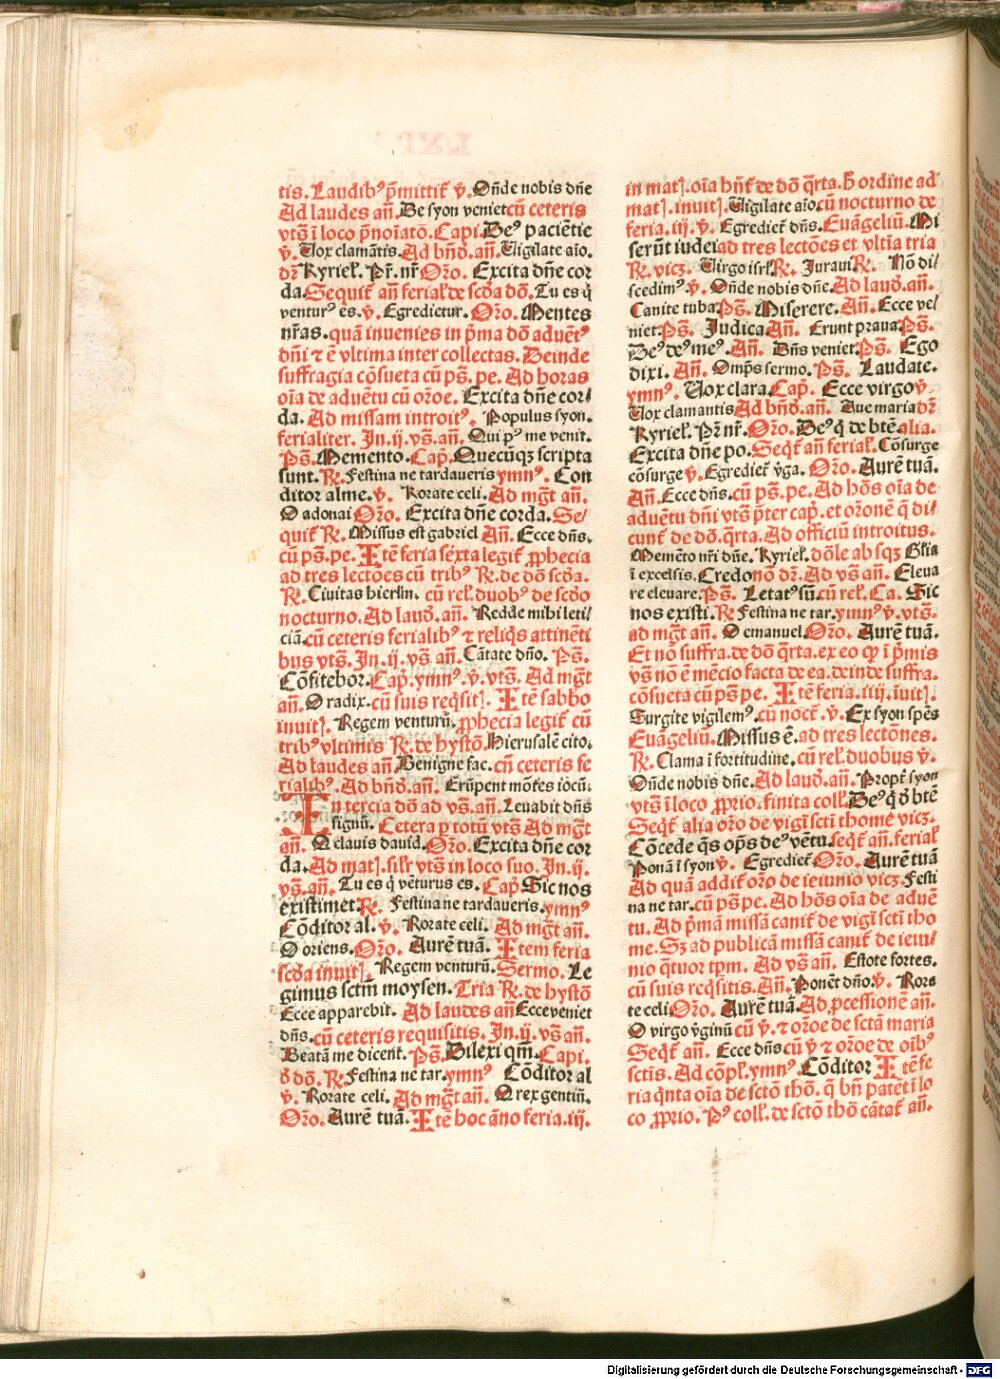 tis. Laudibꝰ p̄mittit᷑ ℣. Oñde nobis dñe
Ad laudes añ. De syon veniet cū ceteris
vtš ī loco p̄noīatō. Capi. Deꝰ paciētie
℣. Uox clamātis. Ad bñđ. añ. Uigilate aīo.
dꝛ Kyriel̄. Pr̄. nr̄ Oꝛo. Excita dñe cor
da. Sequit᷑ añ ferial̄ de scđa dō. Tu es q̄
venturꝰ es. ℣. Egredietur. Oꝛo. Mentes
nr̄as. quā inuenies in p̄ma dō aduēt᷒
dñi ⁊ ē vltima inter collectas. Deinde
suffragia cōsueta cū pš. pe. Ad horas
oīa de aduētu cū oꝛoe. Excita dñe cor/
da. Ad missam introitꝰ. Populus syon.
ferialiter. In. ij. vš. añ. Qui pꝰ me venit.
Pš. Memento. Cap̄. Quecūqꝫ scripta
sunt. ℟. Festina ne tardaueris ymnꝰ. Con
ditor alme. ℣. Rorate celi. Ad mḡt añ.
O adonai Oꝛo. Excita dñe corda. Se/
quit᷑ ℟. Missus est gabriel Añ. Ecce dñs.
cū pš. pe. Itē feria sexta legit᷑ ꝓphecia
ad tres lectōes cū tribꝰ ℟. de dō scđa.
℟. Ciuitas hierlm̄. cū rel̄. duobꝰ de scđo
nocturno. Ad lauđ. añ. Redde mihi leti/
ciā. cū ceteris ferialibꝰ ⁊ reliq̄s attinēti
bus vtš. In. ij. vš añ. Cātate dño. Pš.
Cōfitebor. Cap̄. ymnꝰ. ℣. vtš. Ad mḡt
añ. O radix. cū suis req̄sit̄. Itē sabbo
inuit̄. Regem venturū. ꝓphecia legit᷑ cū
tribꝰ vltimis ℟. de hystō Hierusalē cito.
Ad laudes añ Benigne fac. cū ceteris fe
rialibꝰ. Ad bñđ. añ. Erūpent mōtes iocū.
In tercia dō ad vš. añ. Leuabit dñs
signū. Cetera ꝑ totū vtš Ad mḡt
añ. O clauis dauid. Oꝛo. Excita dñe cor
da. Ad mat̄. silr̄ vtš in loco suo. In. ij.
vš. añ. Tu es q̄ vēturus es. Cap̄. Sic nos
existimet. ℟. Festina ne tardaueris. ymnꝰ
Cōditor al. ℣. Rorate celi. Ad mḡt añ.
O oriens. Oꝛo. Aurē tuā. Item feria
scđa inuit̄. Regem venturū. Sermo. Le
gimus sctm̄ moysen. Tria ℟. de hystō
Ecce apparebit. Ad laudes añ Ecce veniet
dñs. cū ceteris requisitis. In. ij. vš añ.
Beatā me dicent᷑. Pš. Dilexi qm̄. Capi.
đ dō. ℟. Festina ne tar. ymnꝰ Cōditor al
℣. Rorate celi. Ad mḡt añ. O rex gentiū.
Oꝛo. Aurē tuā. Itē hoc āno feria. iij.
in mat̄. oīa hn̄t᷑ de dō q̄rta. h̄ ordine ad
mat̄. inuit̄. Uigilate aīo. cū nocturno de
feria. iij. ℣. Egrediet᷑ dñs. Euāgeliū. Mi
serūt iudei ad tres lectōes et vltīa tria
℟. vicꝫ. Uirgo isrl̄ ℟. Juraui ℟. Nō di/
scedimꝰ. ℣. Oñde nobis dñe. Ad lauđ. añ.
Canite tuba. Pš. Miserere. Añ. Ecce ve/
niet. Pš. Judica Añ. Erunt praua. Pš.
Deꝰ deꝰ meꝰ. Añ. Dñs veniet. Pš. Ego
dixi. Añ. Omp̄s sermo. Pš. Laudate.
ymnꝰ. Uox clara. Cap̄. Ecce virgo ℣.
Uox clamantis Ad bñđ. añ. Aue maria dꝛ
Kyriel̄. Pr̄ nr̄. Oꝛo. Deꝰ q̄ de btē. alia.
Excita dñe po. Seqt᷑ añ ferial̄. Cōsurge
cōsurge ℣. Egrediet᷑ v̄ga. Oꝛo. Aurē tuā.
Añ. Ecce dñs. cū pš. pe. Ad hōs oīa de
aduētu dñi vtš p̄ter cap̄. et oꝛonē q̄ di/
cunt᷑ de dō. q̄rta. Ad officiū introitus.
Memēto nr̄i dñe. Kyriel̄. dōle absqꝫ Glia
ī excelsis. Credo nō dꝛ. Ad vš añ. Eleua
re eleuare. Pš. Letatꝰ sū. cū rel̄. Ca. Sic
nos existi. ℟. Festina ne tar. ymnꝰ ℣. vtš.
ad mḡt añ. O emanuel. Oꝛo. Aurē tuā.
Et nō suffra. de dō q̄rta. ex eo ꝙ ī p̄mis
vš nō ē mēcio facta de ea. deinde suffra.
cōsueta cū pš pe. Itē feria. iiij. īuit̄.
Surgite vigilemꝰ. cū noct᷑. ℣. Ex syon spēs
Euāgeliū. Missus ē. ad tres lectōnes.
℟. Clama ī fortitudine. cū rel̄. duobus ℣.
Oñde nobis dñe. Ad lauđ. añ. Propt᷑ syon
vtš ī loco ꝓprio. finita coll̄. Deꝰ q̄ đ btē
Seqt᷑ alia oꝛo de vigī scti thome vicꝫ.
Cōcede q̄s op̄s deꝰ vētu. seqt᷑ añ. ferial̄
Ponā ī syon ℣. Egrediet᷑. Oꝛo. Aurē tuā
Ad quā addit᷑ oꝛo de ieiunio vicꝫ. Festi
na ne tar. cū pš pe. Ad hōs oīa de aduē
tu. Ad p̄mā missā canit᷑ de vigī scti tho
me. Sꝫ ad publicā missā canit᷑ de ieiu/
nio q̄tuor tp̄m. Ad vš añ. Estote fortes.
cū suis req̄sitis. Añ. Ponēt dño. ℣. Rora
te celi Oꝛo. Aurē tuā. Ad ꝓcessionē añ.
O virgo v̄ginū cū ℣. ⁊ oꝛoe de sctā maria
Seqt᷑ añ. Ecce dñs cū ℣ ⁊ oꝛoe de oībꝰ
sctis. Ad cōpl̄. ymnꝰ Cōditor Itē fe
ria q̄nta oīa de sctō thō. q̄ hn̄ patēt ī lo
co ꝓprio. Pꝰ coll̄. de sctō thō cātat᷑ añ.
Digitalisierung gefördert durch die Deutsche Forschungsgemeinschaft - DFG